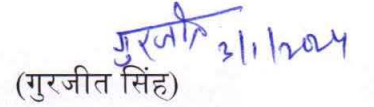 गुरजीत 3/1/2024
(गुरजीत सिंह)